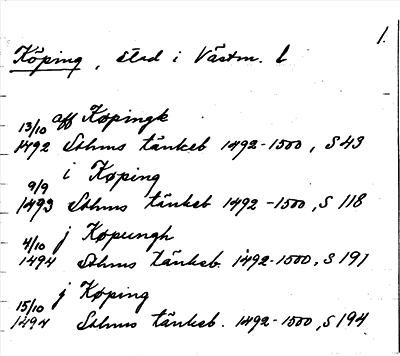 1.
Köping, stad i Västm. l
13/10 aff Køpingk
1492 Sthms tänkeb 1492-1500, S 43
9/9 i Køping
1493 Sthms tänkeb 1492-1500, S 118
4/10 j Køpungh
1494 Sthms tänkeb. 1492-1500, S 191
15/10 j Køping
1494 Sthms tänkeb. 1492-1500, S 194